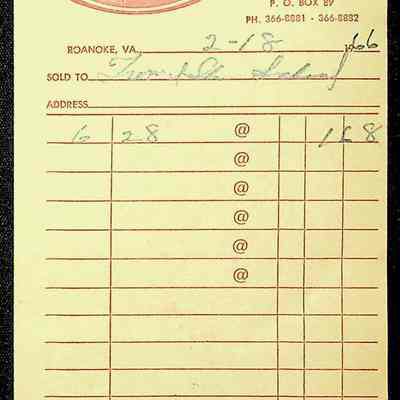 P. O. BOX 89
PH. 366-8881 - 366-8882
ROANOKE, VA. 2-18 66
SOLD TO School
ADDRESS
6 28 @ 168
@
@
@
@
@